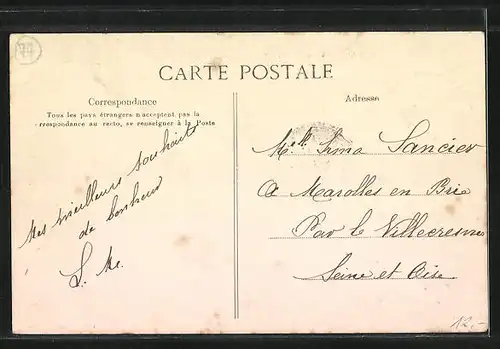 77
CARTE POSTALE
Correspondance
Tous les pays étrangers n'acceptent pas la
correspondance au recto, se renseigner à la Poste
Adresse
Mes meilleurs souhaits
de bonheur
Melle Irma Sancier
à Marolles en Brie
Par le Villecresnes
Seine et Oise.
12,-